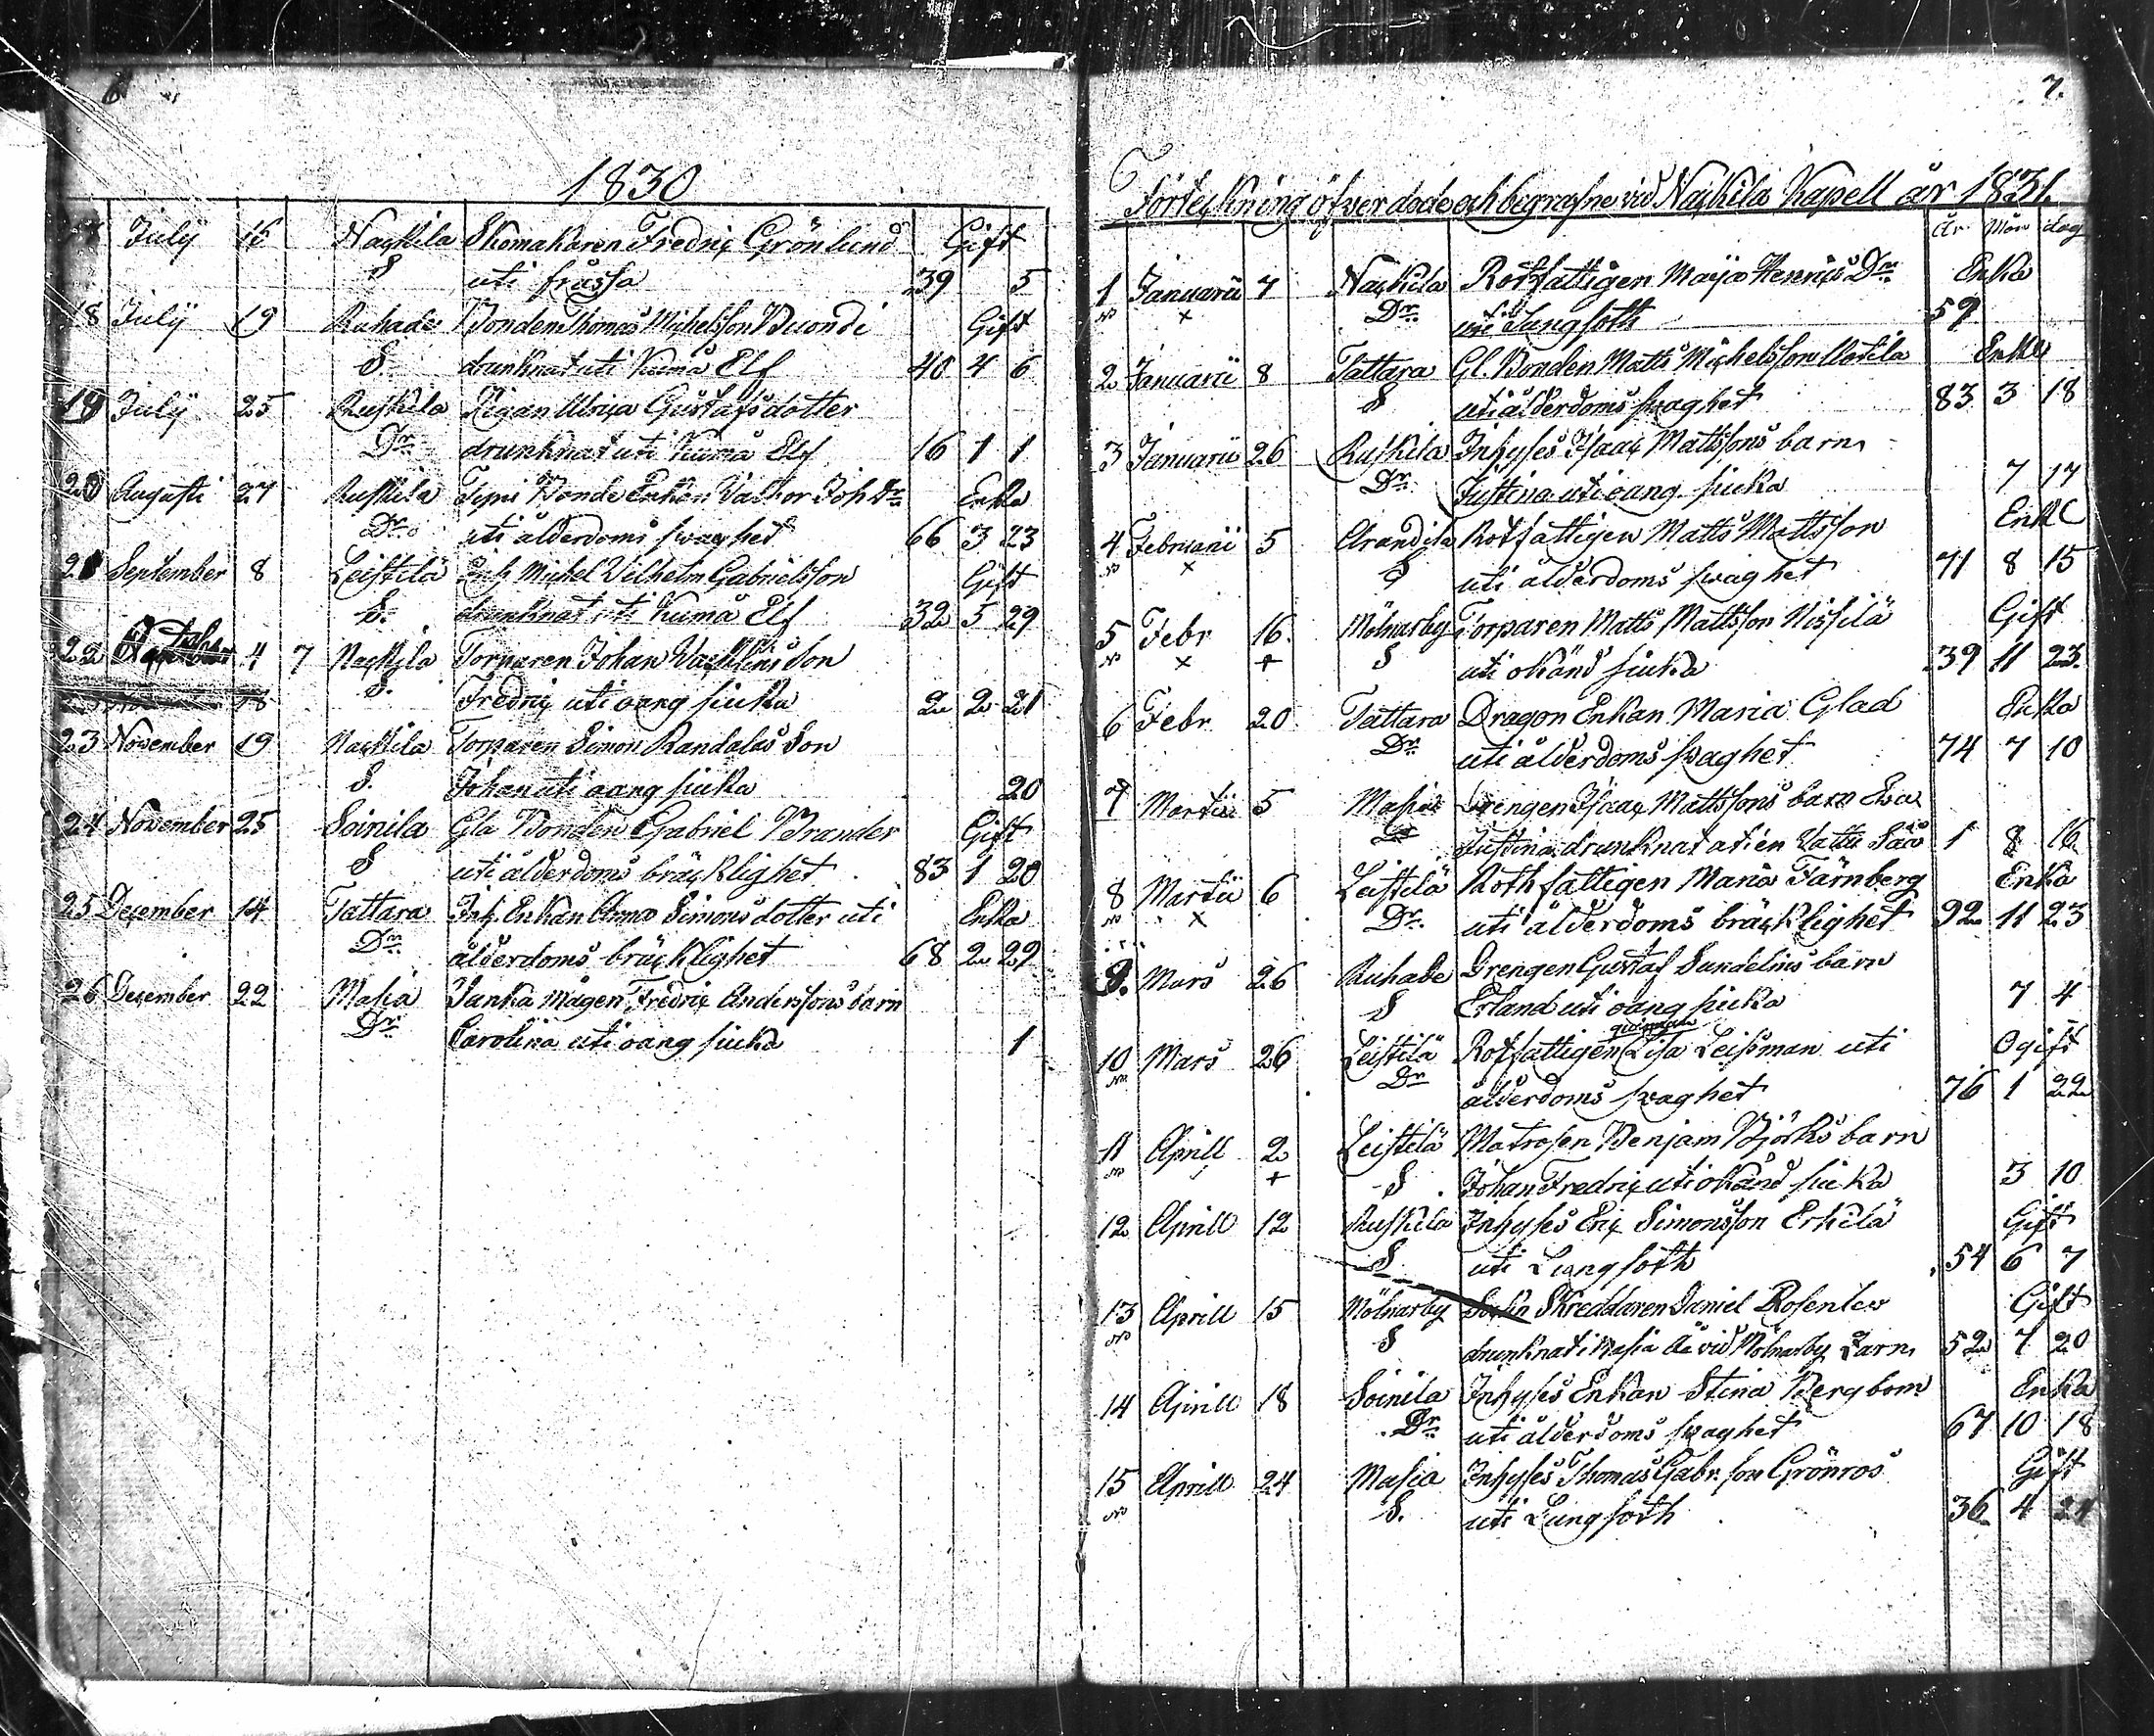 6
1830
July 15 Nackila Skomakaren Fredric Grönlund Gift
S uti frossa 39 5
18 July 19 Ruhade Bonden Thomas Michelsson Buondi Gift
S. drunknat uti Kumå Elf 40 4 6
19 July 25 Ruskila Pigan Ulrica Gustafsdotter
Dr drunknat uti Kumå Elf 16 1 1
20 Augusti 27 Ruskila Bonde Enkan Valbor Joh Dr Enka
Dr. uti ålderdoms swaghet 66 3 23
21 September 8 Leistilä Inh Michel Vilhelm Gabrielsson Gift
S. drunknat uti Kumå Elf 32 5 29
22 4 7 Nackila Torparen Johan Son
S. Fredric uti oang siuka 2 2 21
18
23 November 19 Nackila Torparen Simon Randalas Son
S. Johan uti oang siuka 20
24 November 25 Soinila Gla Bonden Gabriel Brander Gift
S uti ålderdoms bräcklighet 83 1 20
25 December 14 Tattara Inh. Enkan Anna Simonsdotter uti Enka
Dr ålderdoms bräcklighet 68 2 29
26 December 22 Masia Danka mågen Fredric Anderssons barn
Dr Carolina uti oang siuka 1
7.
Förteckning öfwer döde och begrafne vid Nackila Kapell år 1831.
År Mån dag
1 Januarii 7 Nackila Rotfattigen Maja Henrics Dr Enka
No x Dr. uti Lungsoth 59
2 Januarii 8 Tattara Gl. Bonden Matts Michelsson Uotila Enkl
S uti ålderdoms swaghet 83 3 18
3 Januarii 26 Ruskila Inhyses Isaac Mattssons barn
Dr. Justina uti oang. siuka 7 17
4 Februarii 5 Arandila Rotfattigen Matts Mattsson Enkl
No x S uti ålderdoms swaghet 71 8 15
5 Febr 16. Mölnarby Torparen Matts Mattsson Nisilä Gift
No x + S uti okänd siuka 39 11 23
6 Febr 20 Tattara Dragon Enkan Maria Glad Enka
Dr uti ålderdoms swaghet 74 7 10
7 Martii 5 Masia Drengen Isaac Mattssons barn Eva
Justina drunknat uti en Vattu Såå 1 8 16
8 Martii 6 Leistilä Rothfattigen Maria Färnberg Enka
No x Dr. uti ålderdoms bräcklighet 92 11 23
9. Mars 26 Ruhade Drengen Gustaf Sundelins barn
S Erland uti oang siuka 7 4
qvinnan
10 Mars 26 Leistilä Rotfattigen Lisa Leisman uti Ogift
No Dr ålderdoms swaghet 76 1 22
11 Aprill 2 Leistilä Matrosen Benjam Björks barn
No + S Johan Fredric uti okänd siuka 3 10
12 Aprill 12 Ruskila Inhyses Eric Simonsson Erkilä Gift
S uti Lungsoth 54 6 7
13 Aprill 15 Mölnarby Skreddaren Daniel Rosenlew Gift
No S drunknat i Masia Åå vid Mölnarby Qarn 52 7 20
14 Aprill 18 Soinila Inhyses Enkan Stina Bergbom Enka
Dr uti ålderdoms swaghet 67 10 18
15 Aprill 24 Masia Inhyses Thomas Gabr. son Grönros Gift
No S. uti Lungsoth 36 4 24